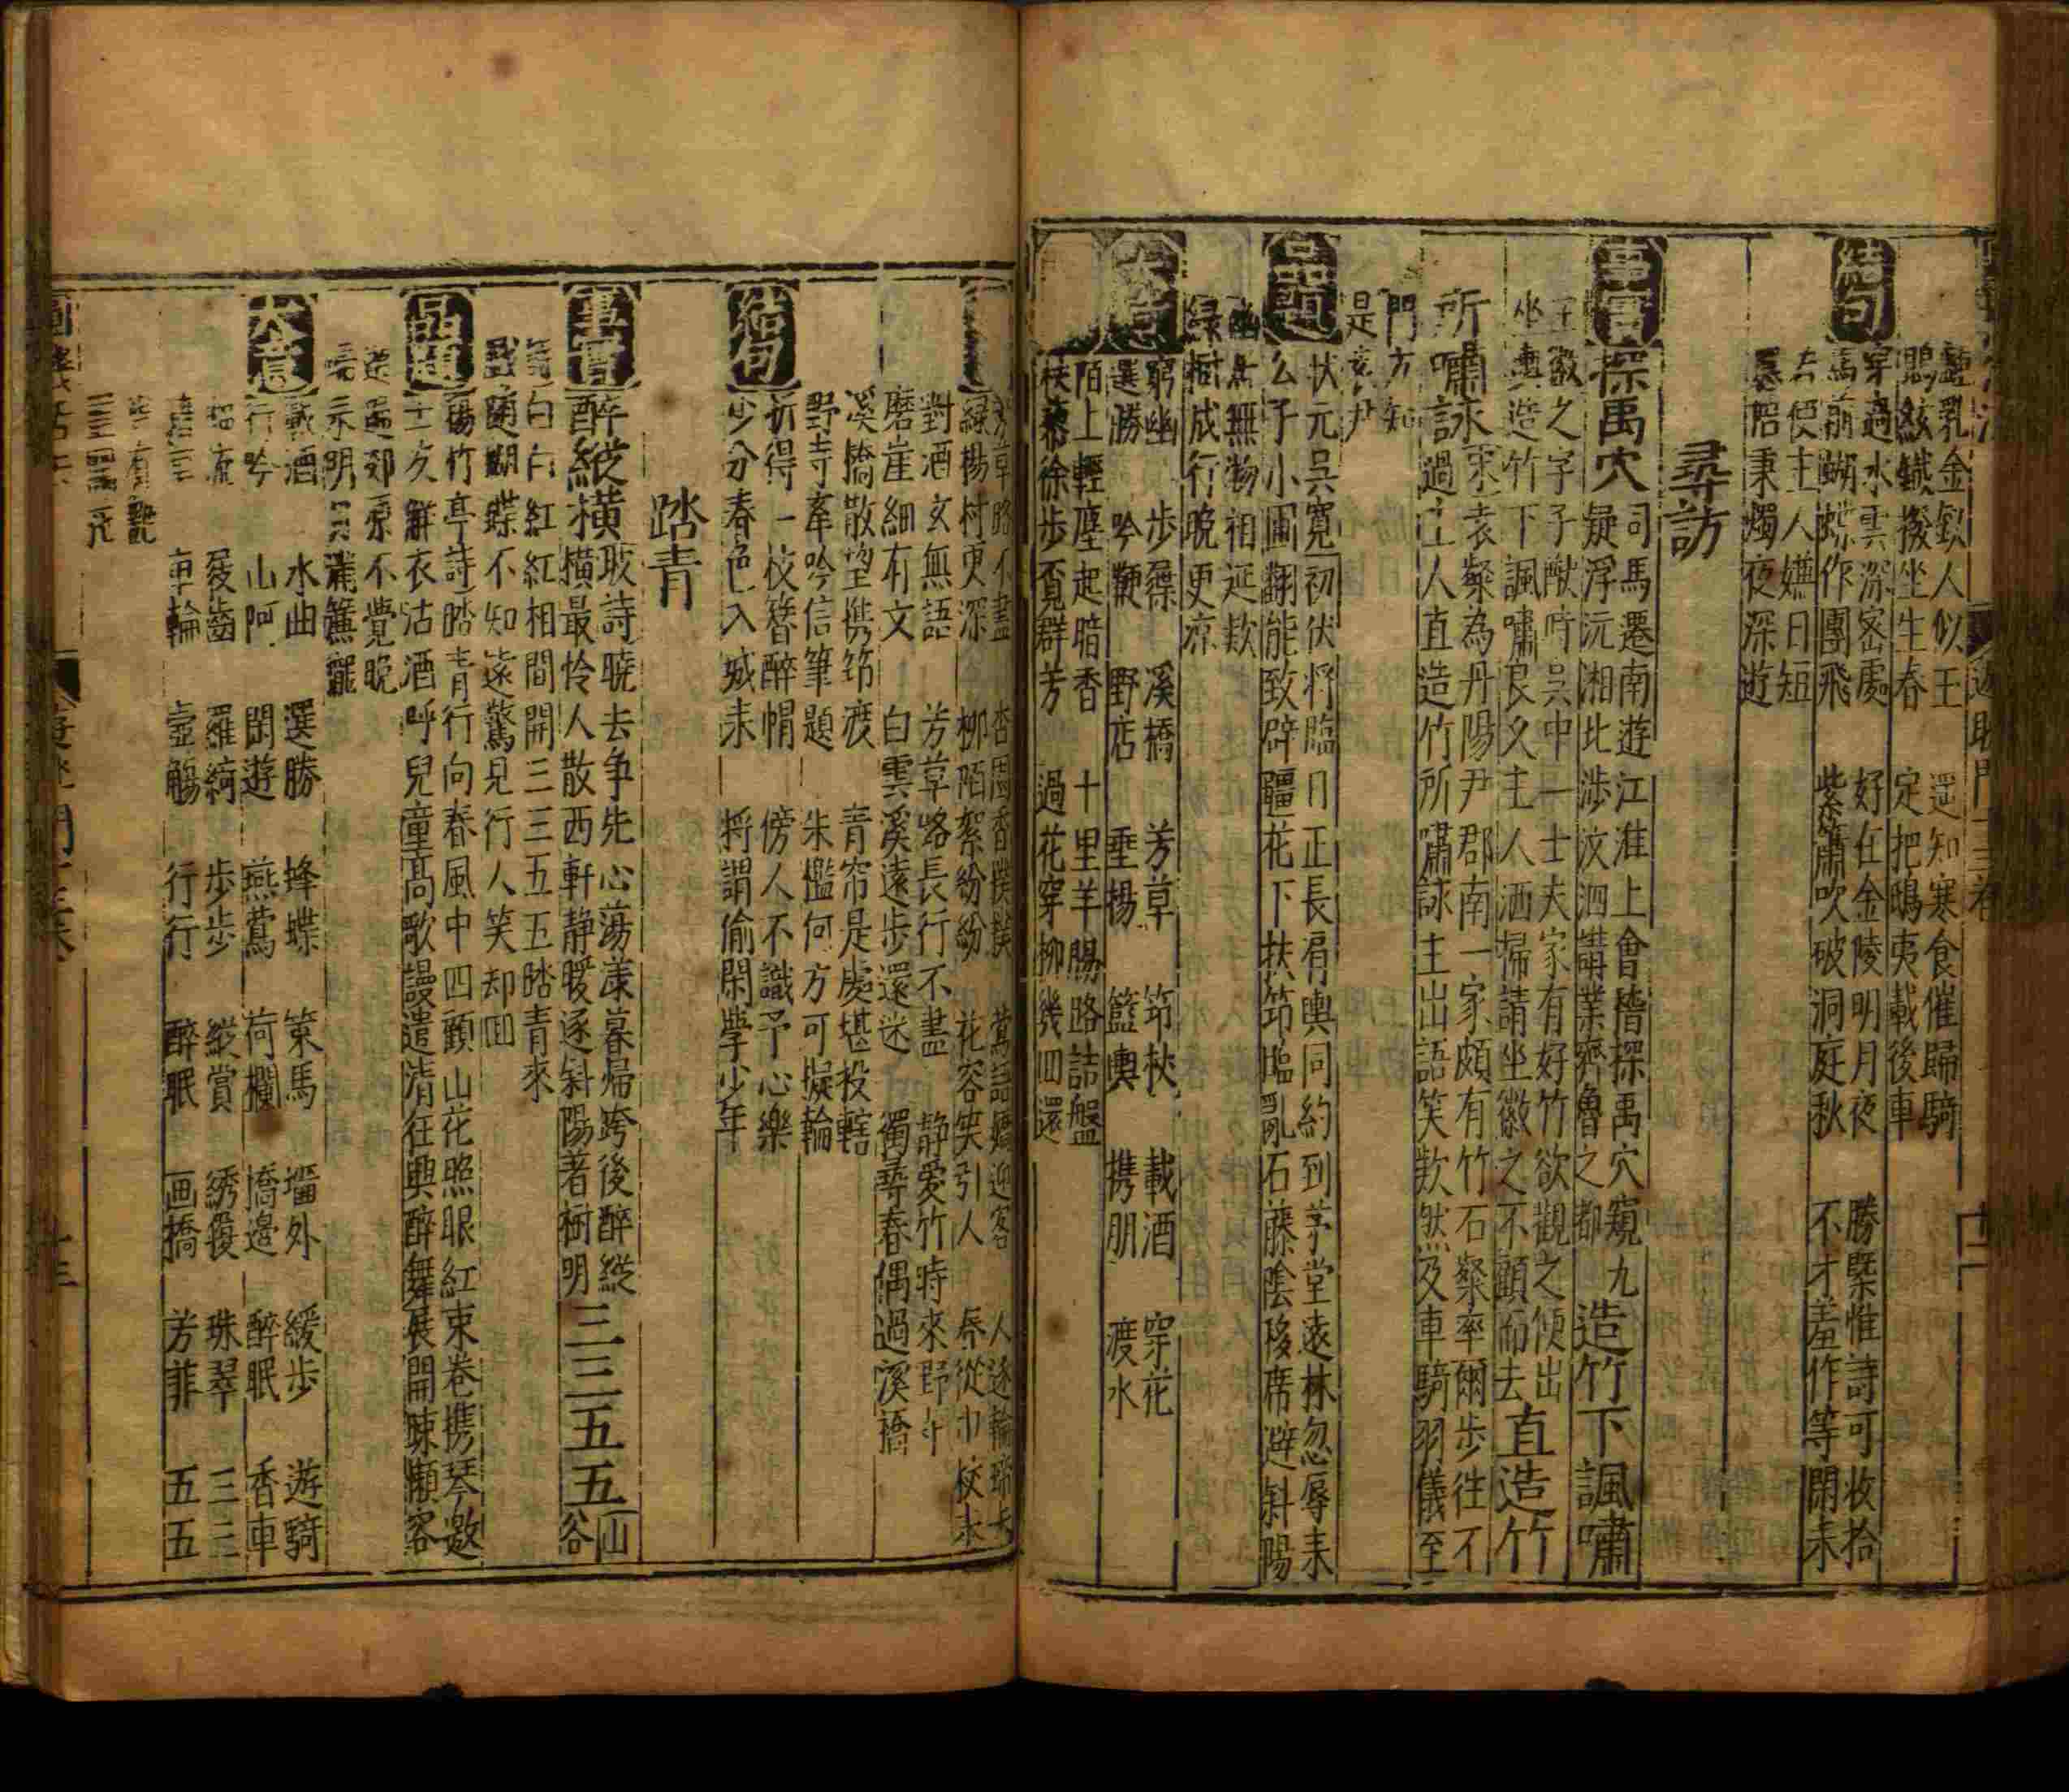 鸎乳金釵人似玉 遥知寒食催歸騎
鵾絃鐵撥坐生春 定把鴟夷載後車
結句
穿過水雲深密處 好在金陵明月夜 勝槩惟詩可收拾
馬前蝴蝶作團飛 紫簫吹破洞庭秋 不才羞作等閑来
去使主人嫌日短
秉燭夜深遊
尋訪
事實
探禹穴
司馬遷南遊江淮上會稽探禹穴窺九
疑浮沅湘北涉汶泗講業齊魯之都
造竹下諷嘯
王徽之字子猷時吳中一士夫家有好竹欲觀之便出
坐輿造竹下諷嘯良久主人洒掃請坐徽之不顧而去
直造竹
所嘯詠
宋袁粲為丹陽尹郡南一家頗有竹石粲率爾步往不
過主人直造竹所嘯詠主出語笑欵然及車騎羽儀至
門方知
是袁尹
品題
状元吳寬初伏将臨日正長肩輿同約到茅堂遠林忽辱来
公子小圃翻能致辟疆花下扶筇臨亂石藤陰移席避斜陽
幽居無物相延欵
緑樹成行晚更凉
大意
窮幽 步屧 溪橋 芳草 筇杖 載酒 穿花
選勝 吟鞭 野店 垂楊 籃輿 携朋 渡水
陌上輕塵起暗香 十里羊腸路詰盤
扶藜徐步覓群芳 過花穿柳幾回還
芳草路不盡 杏園香撲撲 鶯語嬌迎客 人逐輪蹄去
緑楊村更深 柳陌絮紛紛 花容笑引人 春從巾杖来
對酒玄無語 芳草路長行不盡 静爱竹時來野寺
磨崖細有文 白雲溪遠步還迷 獨尋春偶過溪橋
溪橋散望携筇渡 青帘是處堪投轄
野寺牽吟信筆題 朱檻何方可擬輪
結句
折得一枝簪醉帽 傍人不識予心樂
少分春色入城来 将謂偷閑學少年
踏青
事實
醉縱横
耿詩曉去争先心蕩漾暮歸跨後醉縱
横最怜人散西軒静暖逐斜陽著樹明
三三五五
山谷
詩白白紅紅相間開三三五五踏青來
戲随蝴蝶不知遠驚見行人笑却回
品題
楊竹亭詩踏青行向春風中四顧山花照眼紅束卷携琴邀
士友解衣沽酒呼兒童高歌謾遣清狂興醉舞展開踈懶容
遊遍郊原不覺晚
滿簾櫳
大意
載酒 水曲 選勝 蜂蝶 策馬 墻外 緩步 遊騎
行吟 山阿 閑遊 燕鶯 荷欄 橋邊 醉眠 香車
屐齒 羅綺 步步 縱賞 綉縠 珠翠 三三
車輪 壺觴 行行 醉眠 画橋 芳菲 五五